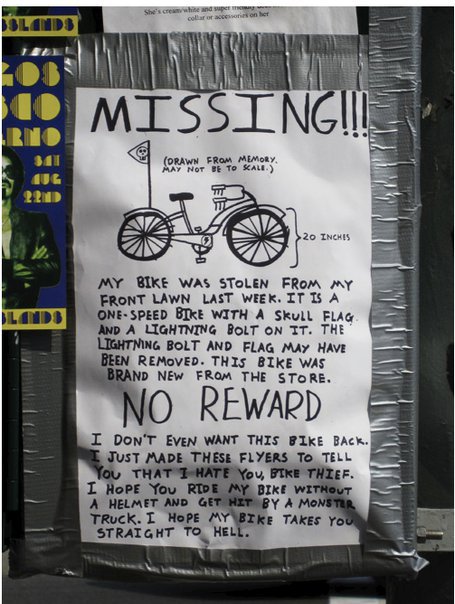 She's cream/white and super friendly
collar or accessories on her
SSLANDS
MISSING!!!
(DRAWN FROM MEMORY.
MAY NOT BE TO SCALE.)
SAT
AUG
22ND
20 INCHES
MY BIKE WAS STOLEN FROM MY
FRONT LAWN LAST WEEK. IT IS A
ONE-SPEED BIKE WITH A SKULL FLAG
AND A LIGHTNING BOLT ON IT. THE
LIGHTNING BOLT AND FLAG MAY HAVE
BEEN REMOVED. THIS BIKE WAS
BRAND NEW FROM THE STORE.
NO REWARD
I DON'T EVEN WANT THIS BIKE BACK.
I JUST MADE THESE FLYERS TO TELL
YOU THAT I HATE YOU, BIKE THIEF.
I HOPE YOU RIDE MY BIKE WITHOUT
A HELMET AND GET HIT BY A MONSTER
TRUCK. I HOPE MY BIKE TAKES YOU
STRAIGHT TO HELL.